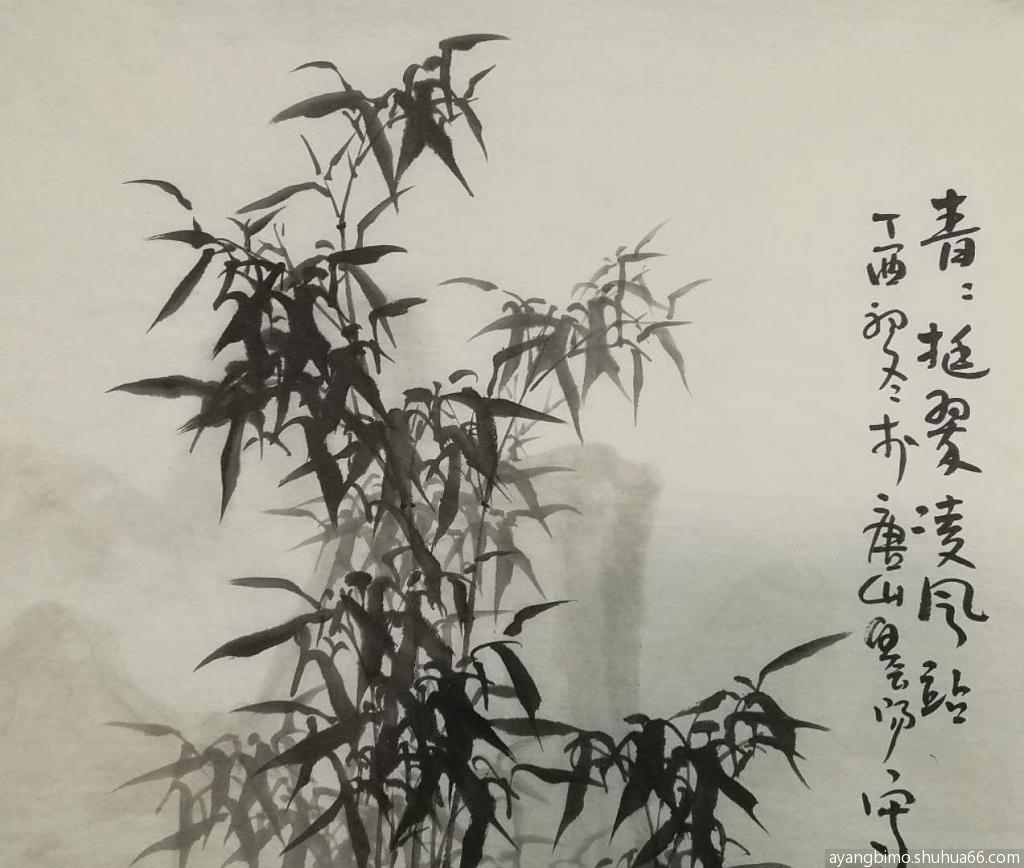 青〻挺翠凌风站
丁酉初冬於唐山昙阳写
ayangbimo.shuhua66.com